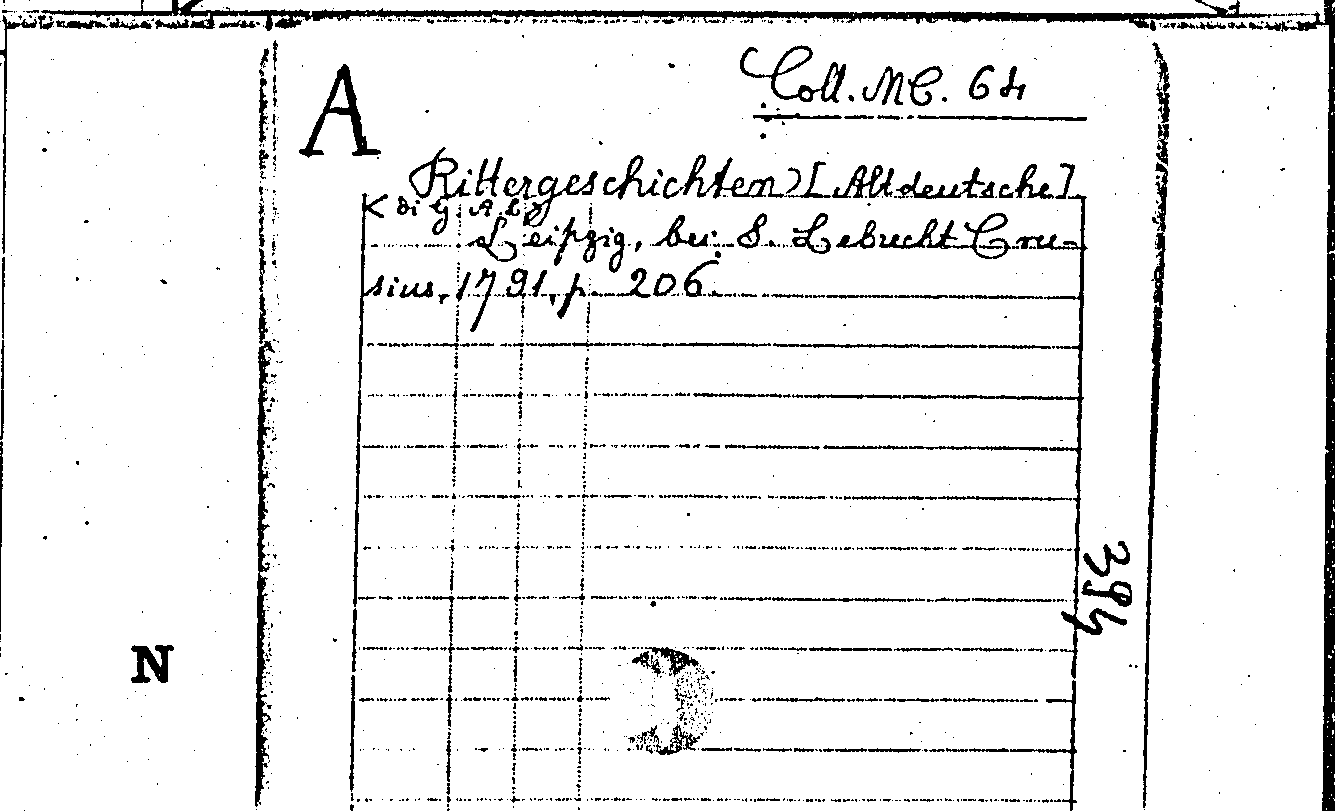 Coll. MC. 64
A
Rittergeschichten) [Altdeutsche]
Leipzig, bei S. Lebrecht Cru-
sius, 1791, p. 206.
394
N